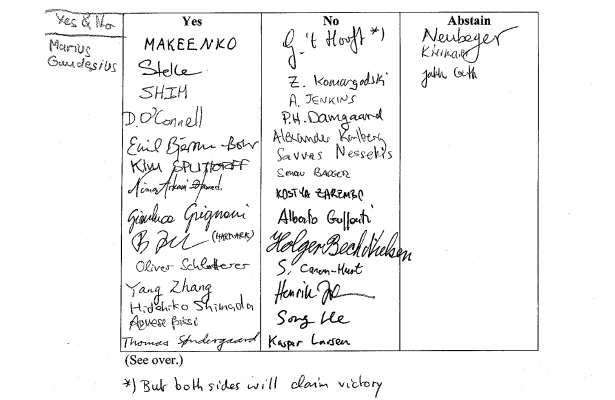 Yes & No
Marius
Gaudesius
Yes
MAKEENKO
Stelle
SHIM
D. O'Connell
Emil Bjerrum-Bohr
KIM SPLITTORFF
Nima Arkani-Hamed
Gianluca Grignani
(HARVARD)
Oliver Schlotterer
Yang Zhang
Hidehiko Shimada
Agnese Bissi
Thomas Søndergaard
No
G. 't Hooft *)
Z. Komargodski
A. JENKINS
P.H. Damgaard
Alexander Karlberg
Savvas Nesseris
SIMON BADGER
KOSTYA ZAREMBO
Alberto Guffanti
Holger Bech Nielsen
S. Caron-Huot
Henrik
Song He
Kasper Larsen
Abstain
Neuberger
(See over.)
*) But both sides will claim victory